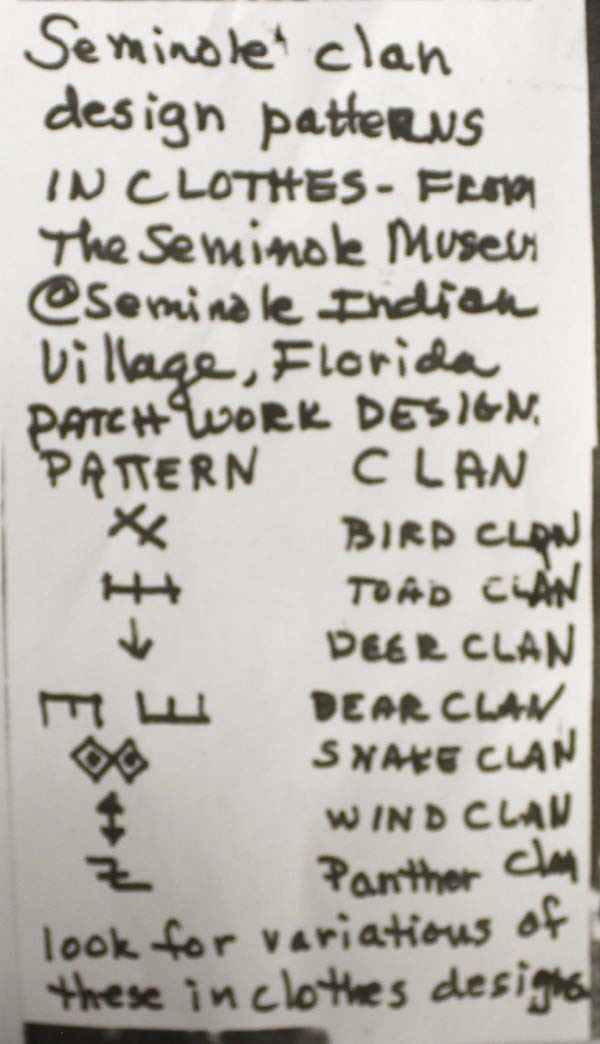 Seminole clan
design patterns
IN CLOTHES - FROM
The Seminole Museum
@Seminole Indian
Village, Florida
PATCHWORK DESIGN.
PATTERN CLAN
BIRD CLAN
TOAD CLAN
DEER CLAN
BEAR CLAN
SNAKE CLAN
WIND CLAN
Panther Clan
look for variations of
these in clothes designs